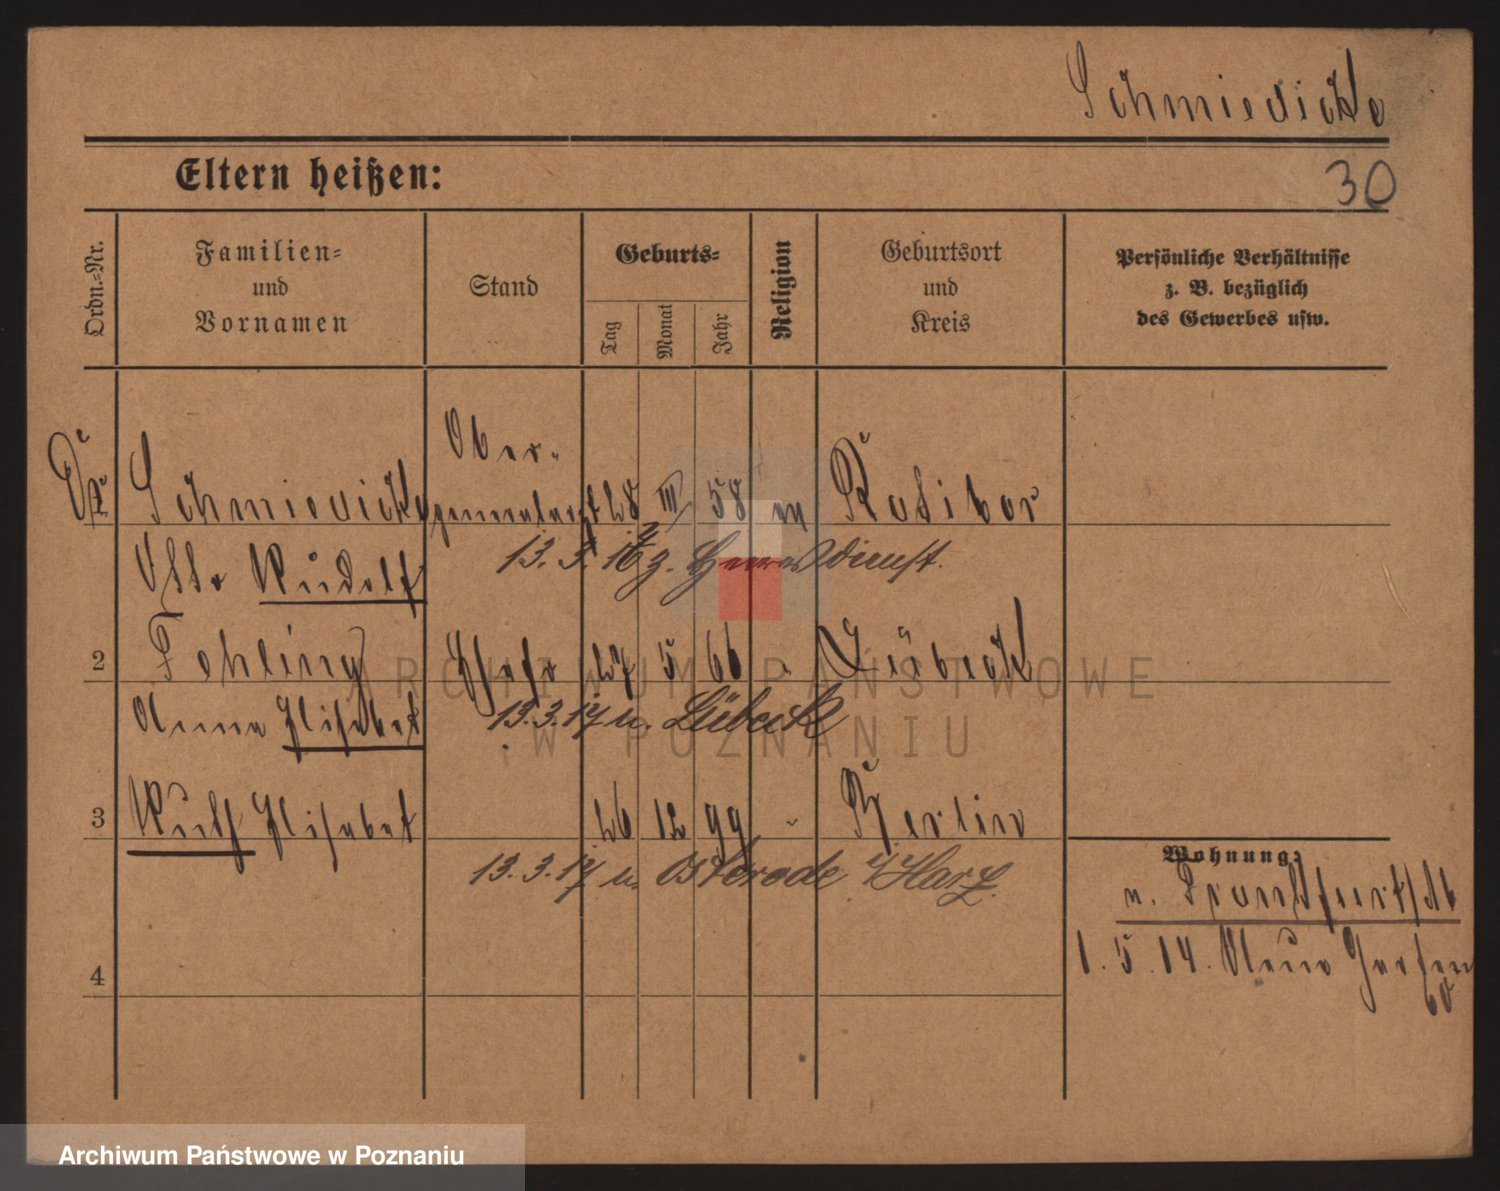 Schmiedicke
Eltern heißen:
30
Ordn.-Nr.
Familien-
und
Vornamen
Stand
Geburts-
Tag
Monat
Jahr
Religion
Geburtsort
und
Kreis
Persönliche Verhältnisse
z. B. bezüglich
des Gewerbes usw.
Dr Schmiedicke Ober-
generalarzt 28 III 58 Ratibor
Otto Rudolf
13. 3. z. Heeresdienst.
2 Fehling Ehefr 27 5 66 " Lübeck
Anna Elisabet
13. 3. 17 n. Lübeck
3 Ruth Elisabet 26 12 99 " Berlin
13. 3. 17 n. Osterode i/Harz.
4
Wohnung:
n. Frankfurt
1. 5. 14. Neue Garten
60
ARCHIWUM PAŃSTWOWE
W POZNANIU
Archiwum Państwowe w Poznaniu